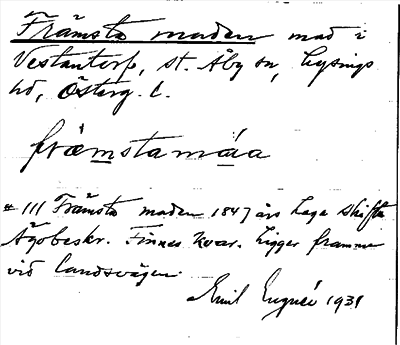 Främsta maden mad i
Vestantorp, St. Åby sn, Lysings
hd, Österg. l.
främstamáa
# 111 Främsta maden 1847 års Laga Skifte
Ägobeskr. Finnes kvar. Ligger framme
vid landsvägen.
Emil 1931